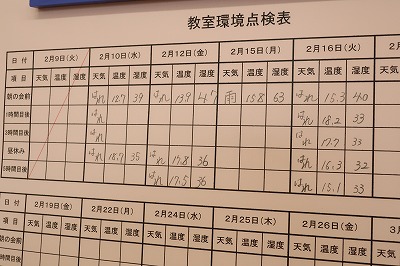 教室環境点検表
日付 2月9日(火) 2月10日(水) 2月12日(金) 2月15日(月) 2月16日(火)
項目 天気 温度 湿度 天気 温度 湿度 天気 温度 湿度 天気 温度 湿度 天気 温度 湿度 天気
朝の会前 はれ 18.7 39 はれ 13.9 47 雨 15.8 63 はれ 15.3 40
1時間目後 はれ はれ 18.2 33
3時間目後 はれ はれ 17.7 33
昼休み はれ 18.7 35 はれ 17.8 36 はれ 16.3 32
5時間目後 はれ 17.5 36 はれ 15.1 33
日付 2月19日(金) 2月22日(月) 2月24日(水) 2月25日(木) 2月26日(金)
項目 天気 温度 湿度 天気 温度 湿度 天気 温度 湿度 天気 温度 湿度 天気 温度 湿度 天気
朝の会前
1時間目後